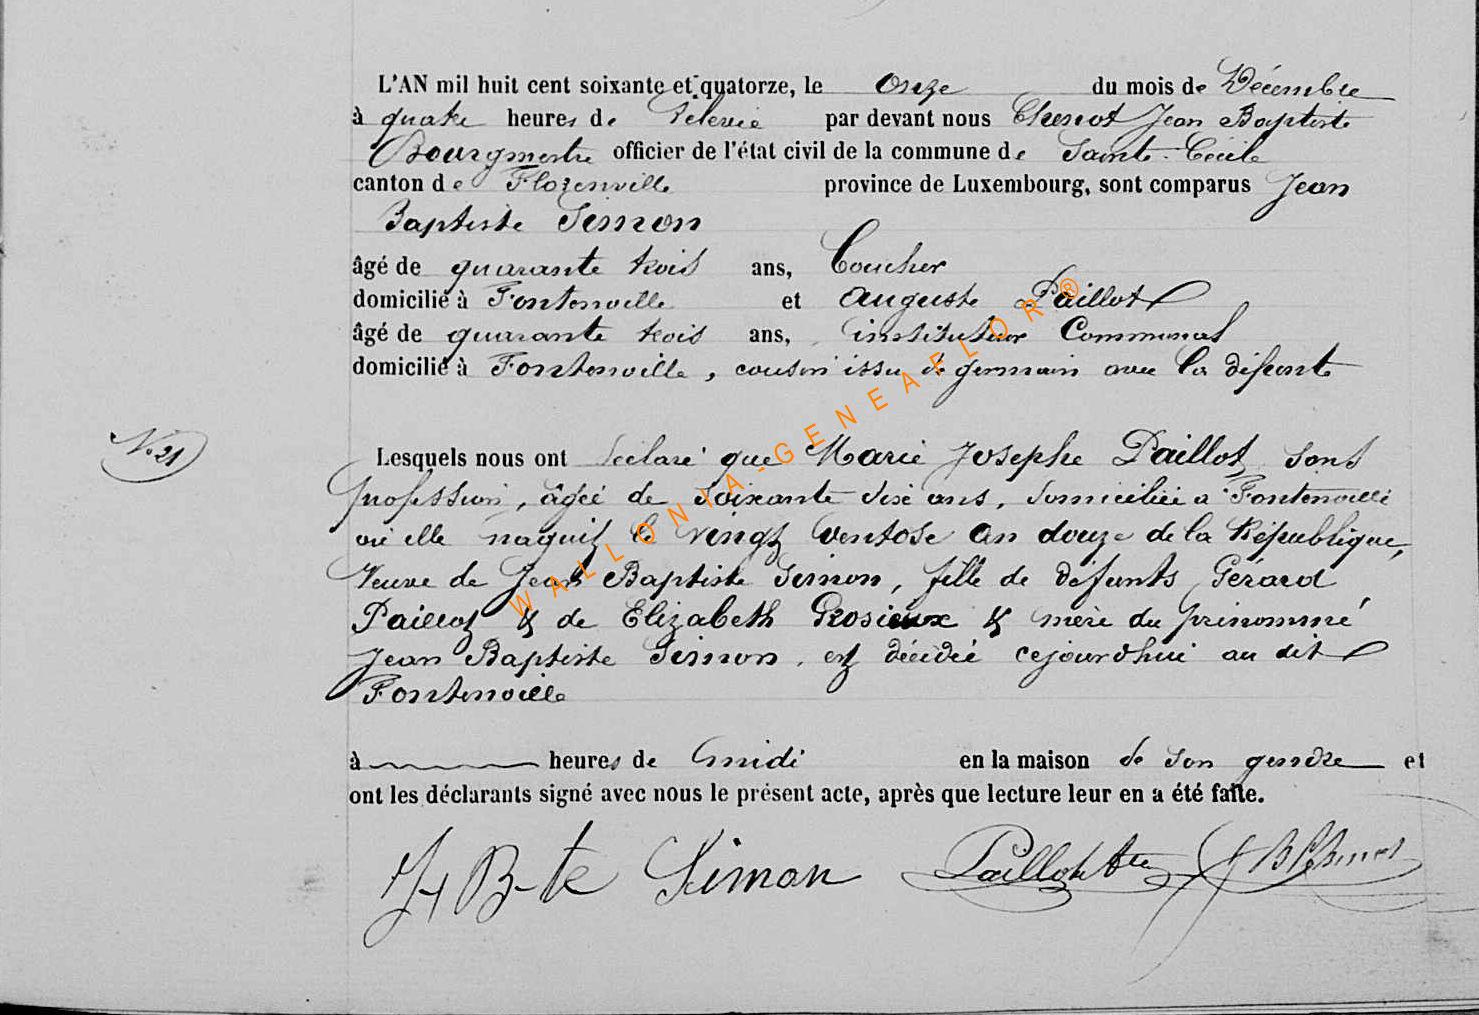 L'AN mil huit cent soixante et quatorze, le onze du mois de Décembre
à quatre heures de relevée par devant nous Chenot Jean Baptiste
Bourgmestre officier de l'état civil de la commune de Sainte-Cécile
canton de Florenville province de Luxembourg, sont comparus Jean
Baptiste Simon
âgé de quarante trois ans,
domicilié à Fontenoille et Auguste Paillot
âgé de quarante trois ans, instituteur Communal
domicilié à Fontenoille, cousin issu de germain avec la défunte
N° 21
Lesquels nous ont déclaré que Marie Josephe Paillot, sans
profession, âgée de soixante dix ans, domiciliée à Fontenoille
où elle naquit le vingt ventose an douze de la République,
Veuve de Jean Baptiste Simon, fille de défunts Gérard
Paillot & de Elizabeth Rosieux & mère du prénommé
Jean Baptiste Simon, est décédée cejourd'hui au dit
Fontenoille
à heures de midi en la maison de son gendre et
ont les déclarants signé avec nous le présent acte, après que lecture leur en a été faite.
J B-te Simon Paillot Ate JB Chenot
WALLONIA-GENEAFLOR®